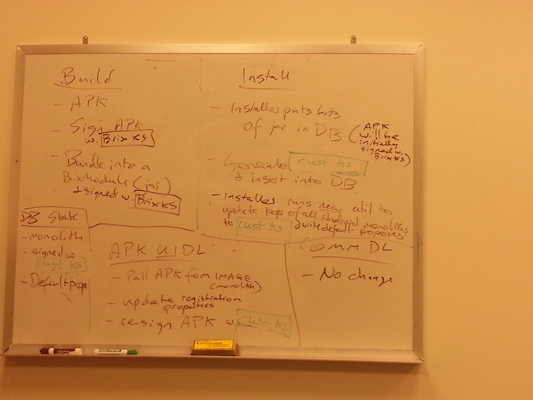 Build
- APK
- Sign APK
w. Brix KS
- Bundle into a
Bix Module (jar)
& signed w. Brix KS
Install
- Installer puts bits
of jar in DB (APK
will be
initially
signed w.
Brix KS)
- Generated cust ks
& insert into DB
- Installer runs new util to
update keys of all Android monoliths
to cust ks & write default properties
DB State
- monolith
- signed w
cust ks
- Default prop
APK UI DL
- Pull APK from IMAGE
(monolith)
- update registration
properties
- re-sign APK w. cust ks
Comm DL
- No change